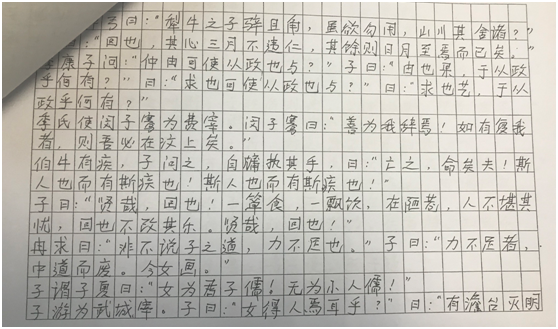 弓曰：“犁牛之子骍且角，虽欲勿用，山川其舍诸？”
：“回也，其心三月不违仁，其馀则日月至焉而已矣。”
康子问：“仲由可使从政也与？”子曰：“由也果，于从政
乎何有？”曰：“求也可使从政也与？”曰：“求也艺，于从
政乎何有？”
季氏使闵子骞为费宰。闵子骞曰：“善为我辞焉！如有复我
者，则吾必在汶上矣。”
伯牛有疾，子问之，自牖执其手，曰：“亡之，命矣夫！斯
人也而有斯疾也！斯人也而有斯疾也！”
子曰：“贤哉，回也！一箪食，一瓢饮，在陋巷，人不堪其
忧，回也不改其乐。贤哉，回也！”
冉求曰：“非不说子之道，力不足也。”子曰：“力不足者，
中道而废。今女画。”
子谓子夏曰：“女为君子儒！无为小人儒！”
子游为武城宰。子曰：“女得人焉耳乎？”曰：“有澹台灭明